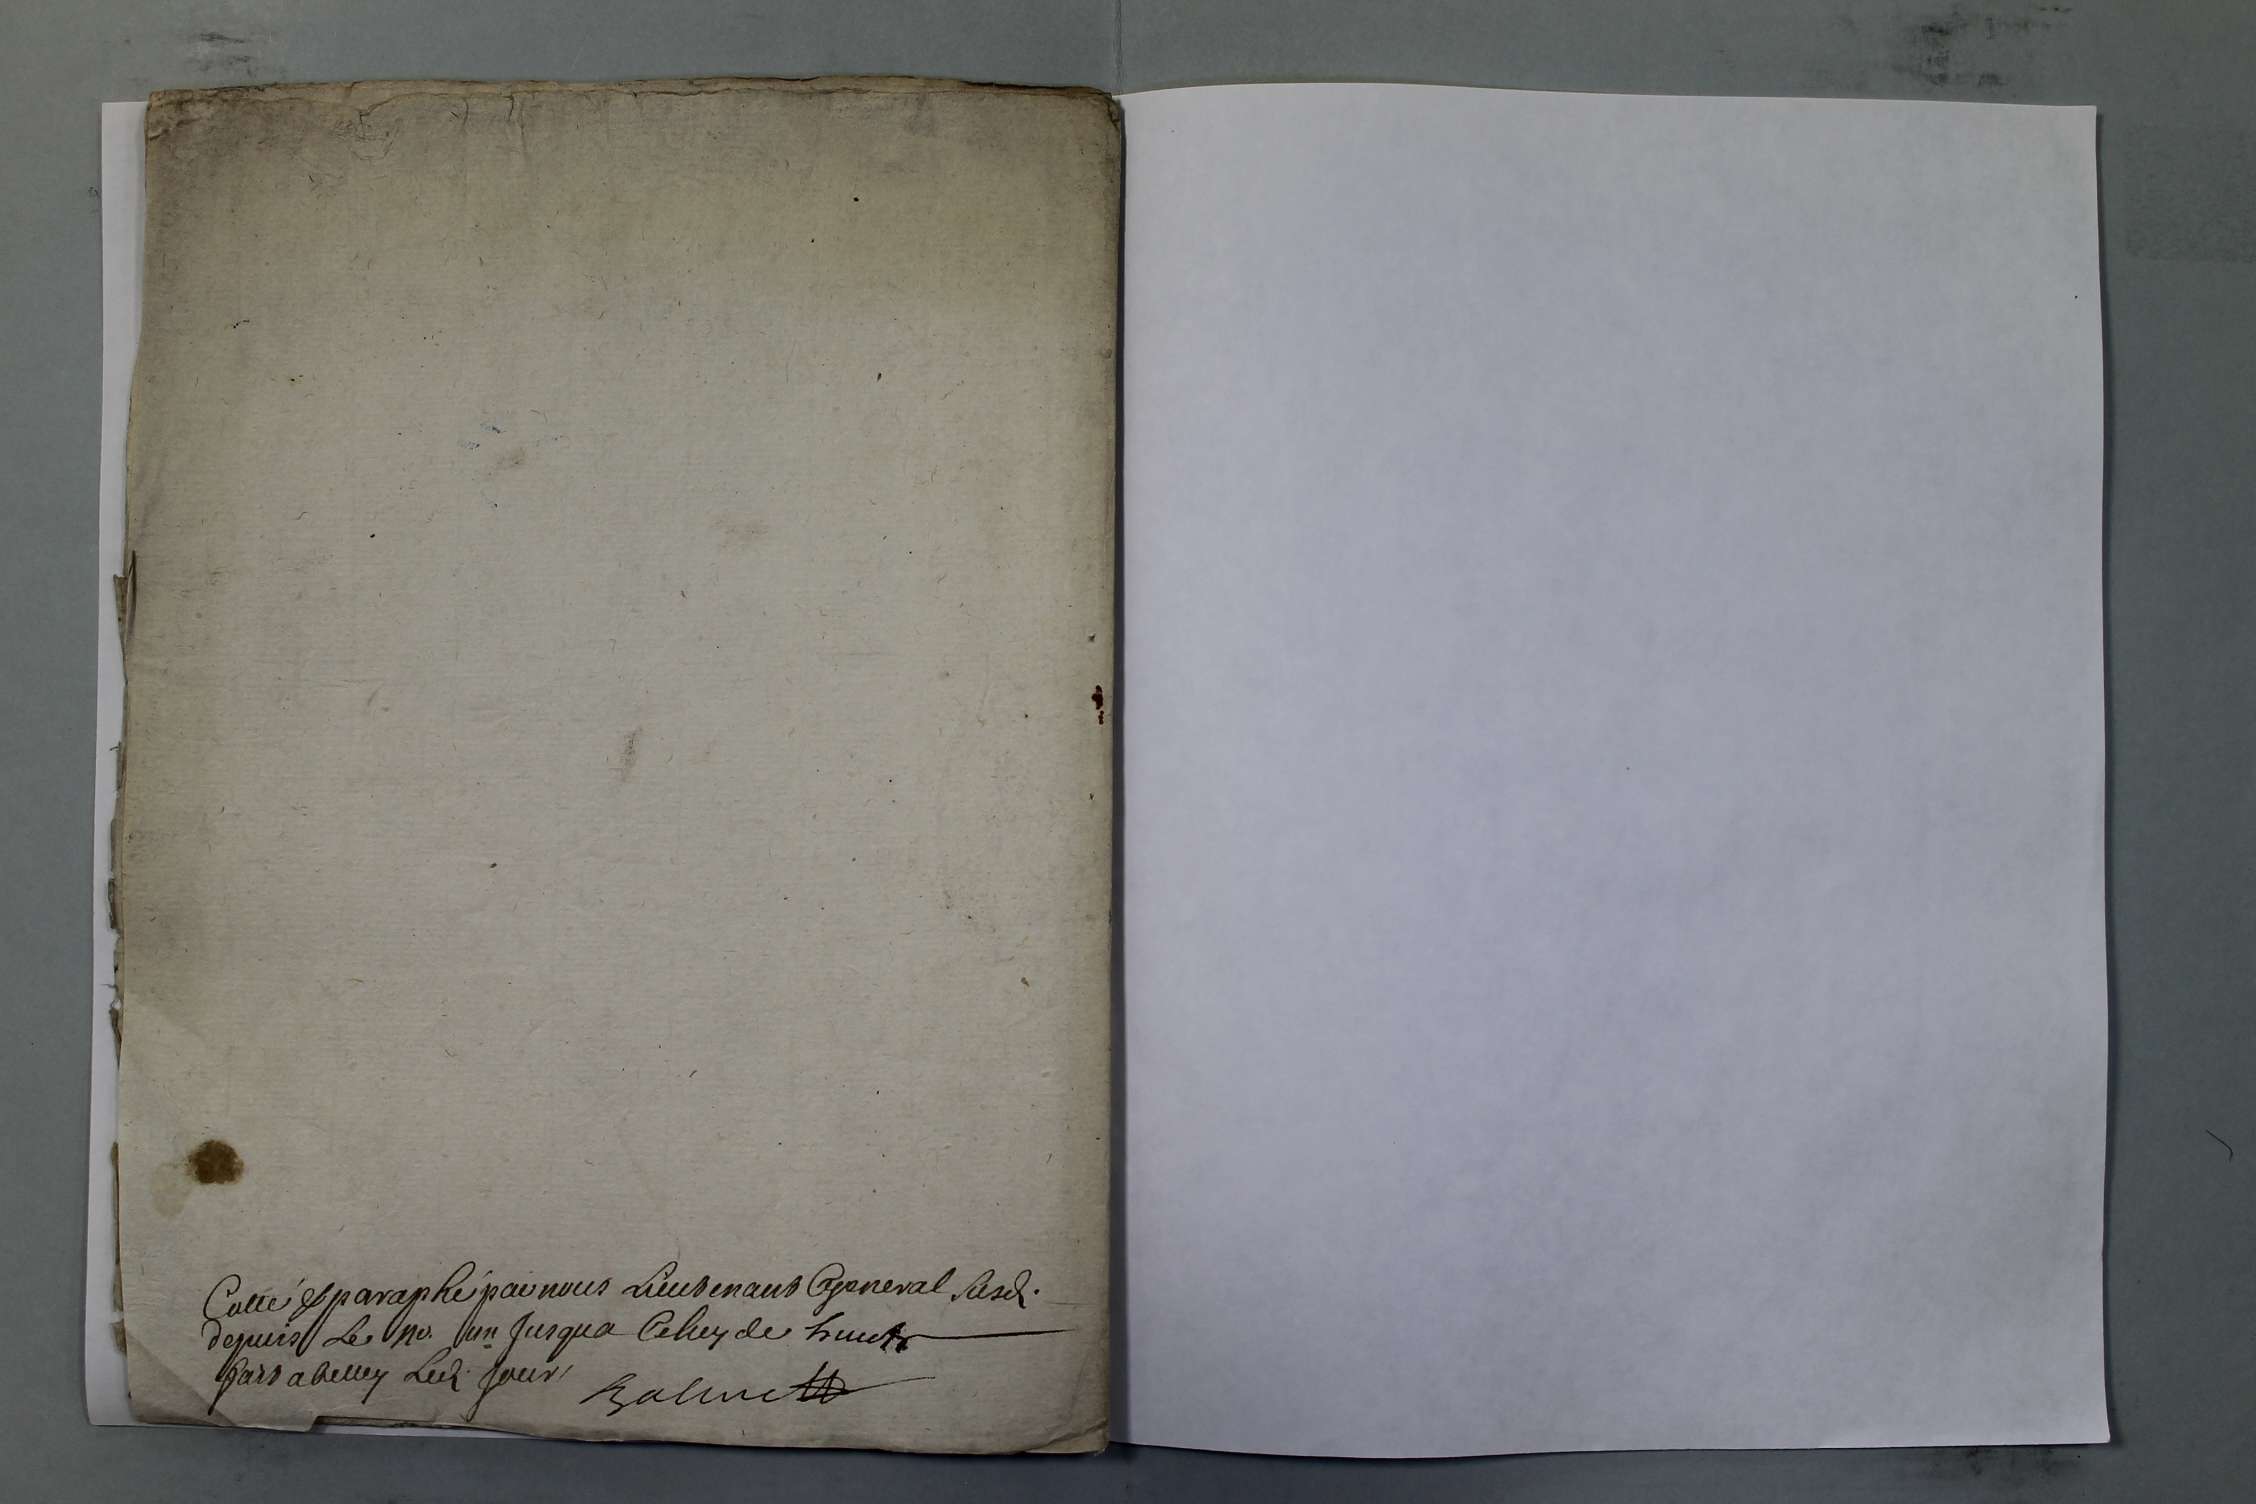 Cotté & paraphé par nous Lieutenant General susd.
depuis Le no. un Jusqua Celuy de huit
fait a belley Led. Jour